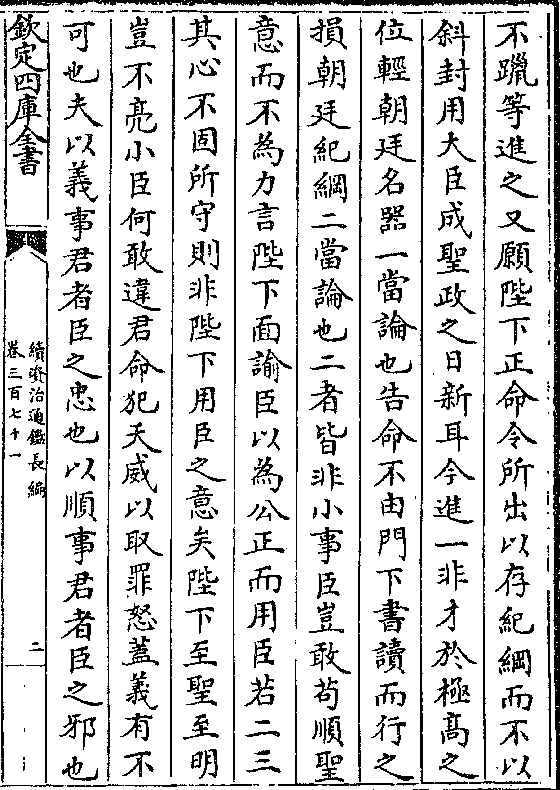 不躐等進之又願陛下正命令所出以存紀綱而不以
斜封用大臣成聖政之日新耳今進一非才於極高之
位輕朝廷名器一當論也告命不由門下書讀而行之
損朝廷紀綱二當論也二者皆非小事臣豈敢茍順聖
意而不為力言陛下面諭臣以為公正而用臣若二三
其心不固所守則非陛下用臣之意矣陛下至聖至明
豈不亮小臣何敢違君命犯天威以取罪怒蓋義有不
可也夫以義事君者臣之忠也以順事君者臣之邪也
欽定四庫全書
續資治通鑑長編
卷三百七十一
二